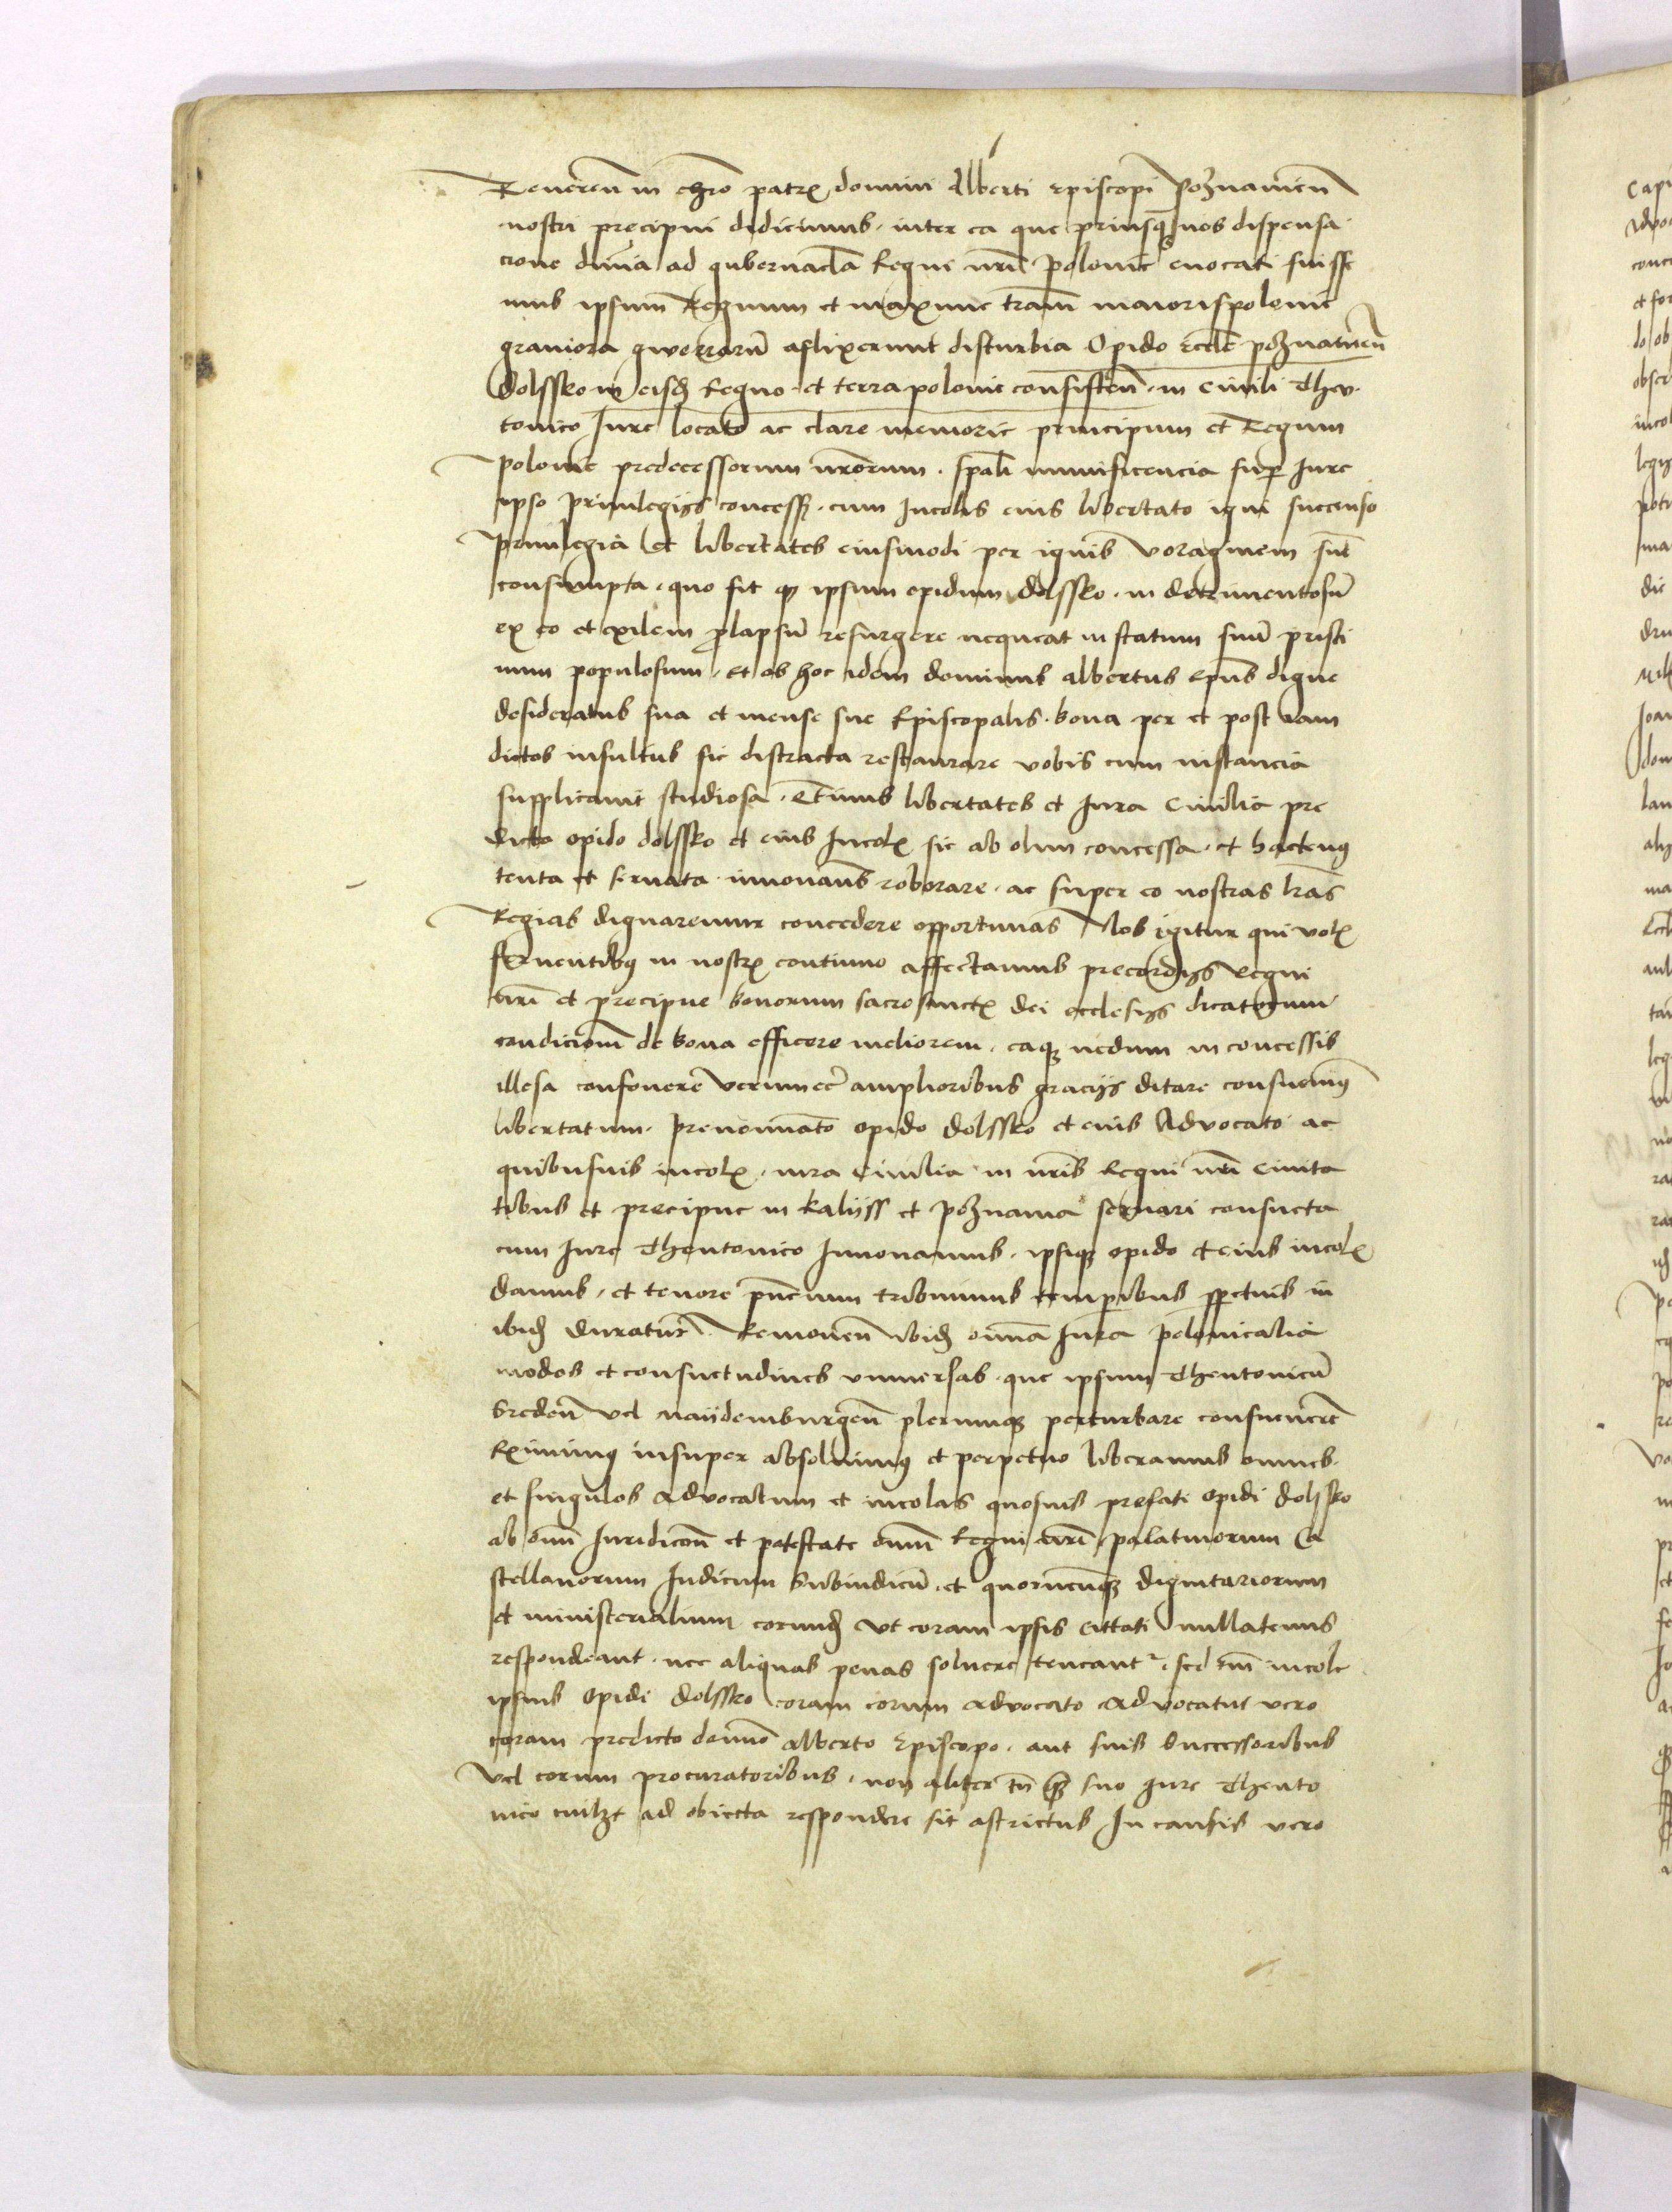 Reueren in chro patrꝭ domini Alberti Episcopi Poznaniēn
nostri precipui didicimus inter ea que priusq̄ nos dispensa
cione diuīa ad gubernacl̄a Regni nrī polonie euocati fuisse
mus ipsum Regnum et maxime trām maiorispolonie
grauiora gwerrarū aflixerunt disturbia Opido eccl̄e poznaniēn
Dolssko in eisdē Regno et terra polonie consistēn in Ciuili Theu
tonico Iure locato ac clare memorie principum et Regum
polonie predecessorum nrōrum sp̄ali munificencia sup̄ Iure
ipso priuilegijs concessꝭ cum Incolis eius libertato igni succenso
priuilegia et libertates eiusmodi per ignis voraginem sūt
consumpta quo fit qꝫ ipsum opidum Dolssko in detrimentosū
ex eo et exilem prolapsū resurgere nequeat in statum suū pristi
num populosum et ob hoc idem dominus albertus Epūs digne
desideratus sua et mense sue Episcopalis bona per et post iam
dictos insultus sic distracta restaurare nobis cum instancia
supplicauit studiosa Etimus libertates et Iura Ciuilia pre
dicto opido dolssko et eius Incolꝭ sic ab olim concessa et hactenꝰ
tenta et seruata innouans roborare ac super eo nostras lrās
Regias dignaremur concedere opportunas Nos igitur qui votꝭ
feruentibꝰ in nostrꝭ continuo affectamus precordijs Regni
nrī et precipue bonorum sacrosanctꝭ dei ecclesijs dicatorum
condicionē de bona efficere meliorem eaqꝫ nedum in concessis
illesa confouere verumecī amplioribus gracijs ditare consueuimꝰ
libertatum prenominato opido dolssko et eius Aduocato ac
quibusuis incolꝭ iura Ciuilia in nrīs Regni nrī Ciuita
tibus et precipue in Kalijss et poznania seruari consueta
cum Iure Theutonico Innouamus ipsiqꝫ opido et eius incolꝭ
damus et tenore pn̄cium tribuimus temporibus perpetuis in
ibidē duratur̄ Remouen̄ ibidē omīa Iura polonicalia
modos et consuetudines vniuersas que ipsum Theutonicū
Sreden̄ vel maijdemburgen̄ plerumqꝫ perturbare consueuerē
Eximimꝰ insuper absoluimꝰ et perpetuo liberamus omnes
et singulos aduocatum et incolas quosuis prefati opidi dolssko
ab omni Iuridicōn et potestate omīm Regni nrī palatinorum Ca
stellanorum Iudicum Subiudicū et quorūcunqꝫ dignitariorum
et ministerialium eorundē vt coram ipsis cittati nullatenus
respondeant nec aliquas penas soluere teneant᷑ sed tm̄ incole
ipsius opidi dolssko coram eorum aduocato aduocatus vero
coram predicto domino Alberto Episcopo aut suis Successoribus
vel eorum procuratoribus non aliter tn̄ qm̄ suo Iure Theuto
nico cuilꝫt ad obiecta respondere sit astrictus In causis vero